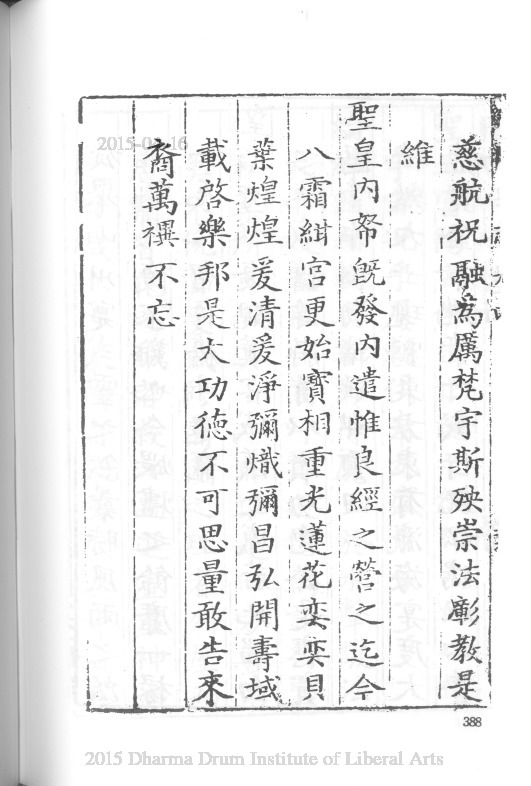 慈航祝融為厲梵宇斯殃崇法彰教是
維
聖皇內帑旣發內遣惟良經之營之迄今
八霜紺宮更始寶相重光蓮花奕奕貝
葉煌煌爰清爰淨彌熾彌昌弘開壽域
載啓樂邦是大功徳不可思量敢告來
裔萬禩不忘
388
2015 Dharma Drum Institute of Liberal Arts